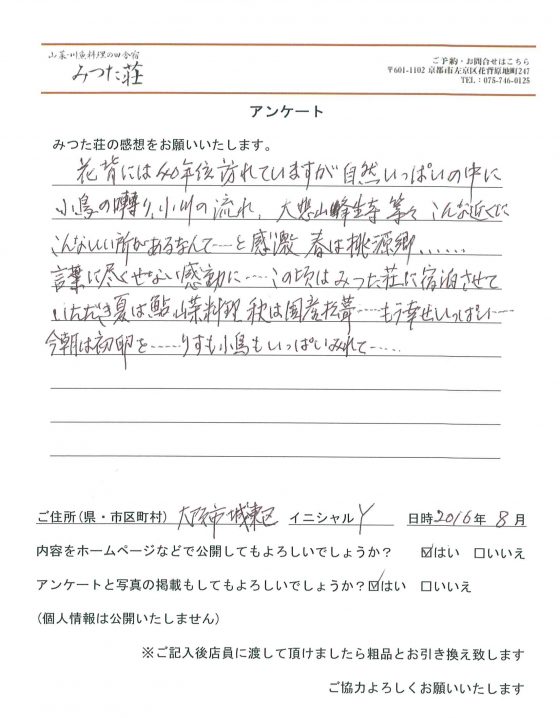 山菜・川魚料理の田舎宿
みつた荘
ご予約・お問合せはこちら
〒601-1102 京都市左京区花背原地町247
TEL：075-746-0125
アンケート
みつた荘の感想をお願いいたします。
花背には40年位訪れていますが自然いっぱいの中に
小鳥の囀り、小川の流れ、大悲山峰定寺等々こんな近くに
こんないい所があるなんて…と感激 春は桃源郷......
言葉に尽くせない感動に……この頃はみつた荘に宿泊させて
いただき夏は鮎山菜料理 秋は国産松茸……もう幸せいっぱい…
今朝は初卵を……りすも小鳥もいっぱいみれて……
ご住所(県・市区町村) 大阪市城東区 イニシャル Y 日時2016年 8月
内容をホームページなどで公開してもよろしいでしょうか？ ☑はい □いいえ
アンケートと写真の掲載もしてもよろしいでしょうか？☑はい □いいえ
(個人情報は公開いたしません)
※ご記入後店員に渡して頂けましたら粗品とお引き換え致します
ご協力よろしくお願いいたします